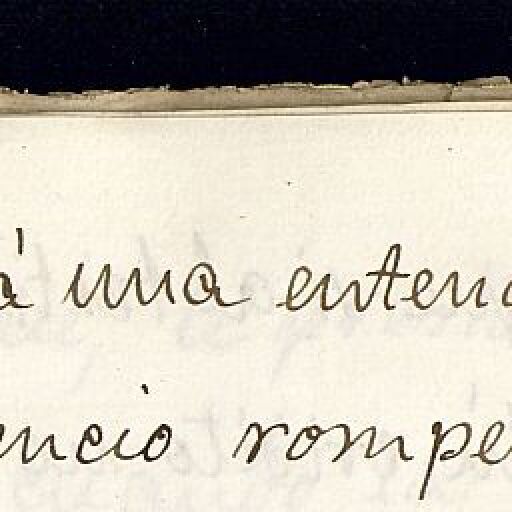 á una entend
encio rompe